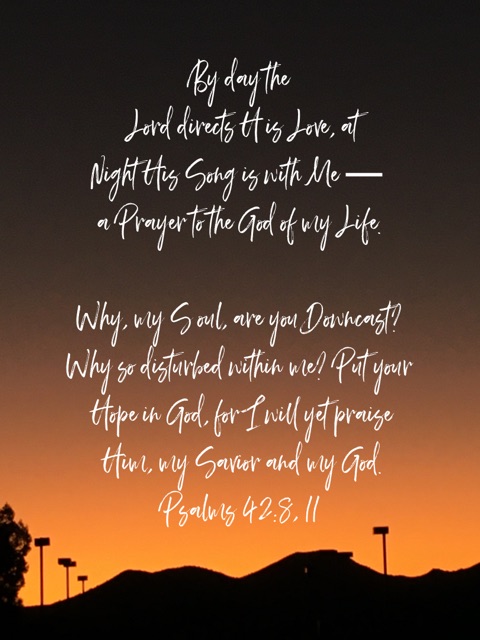 By day the
Lord directs His Love, at
Night His Song is with Me —
a Prayer to the God of my Life.
Why, my Soul, are you Downcast?
Why so disturbed within me? Put your
Hope in God, for I will yet praise
Him, my Savior and my God.
Psalms 42:8, 11